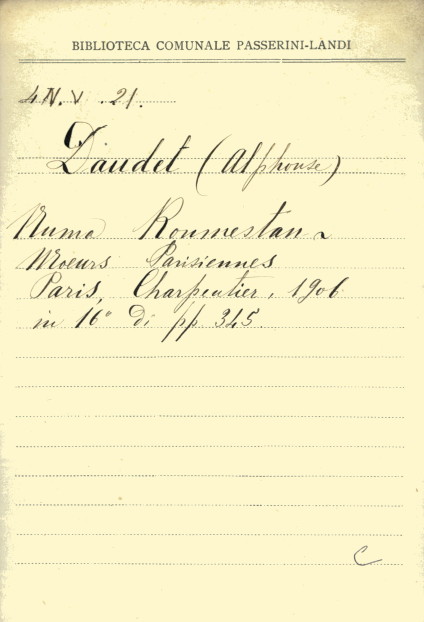 BIBLIOTECA COMUNALE PASSERINI-LANDI
4 N. V. 21.
Daudet (Alphonse)
Numa Roumestan ~
Moeurs Parisiennes
Paris, Charpentier, 1906
in 16° di pp 345.
C